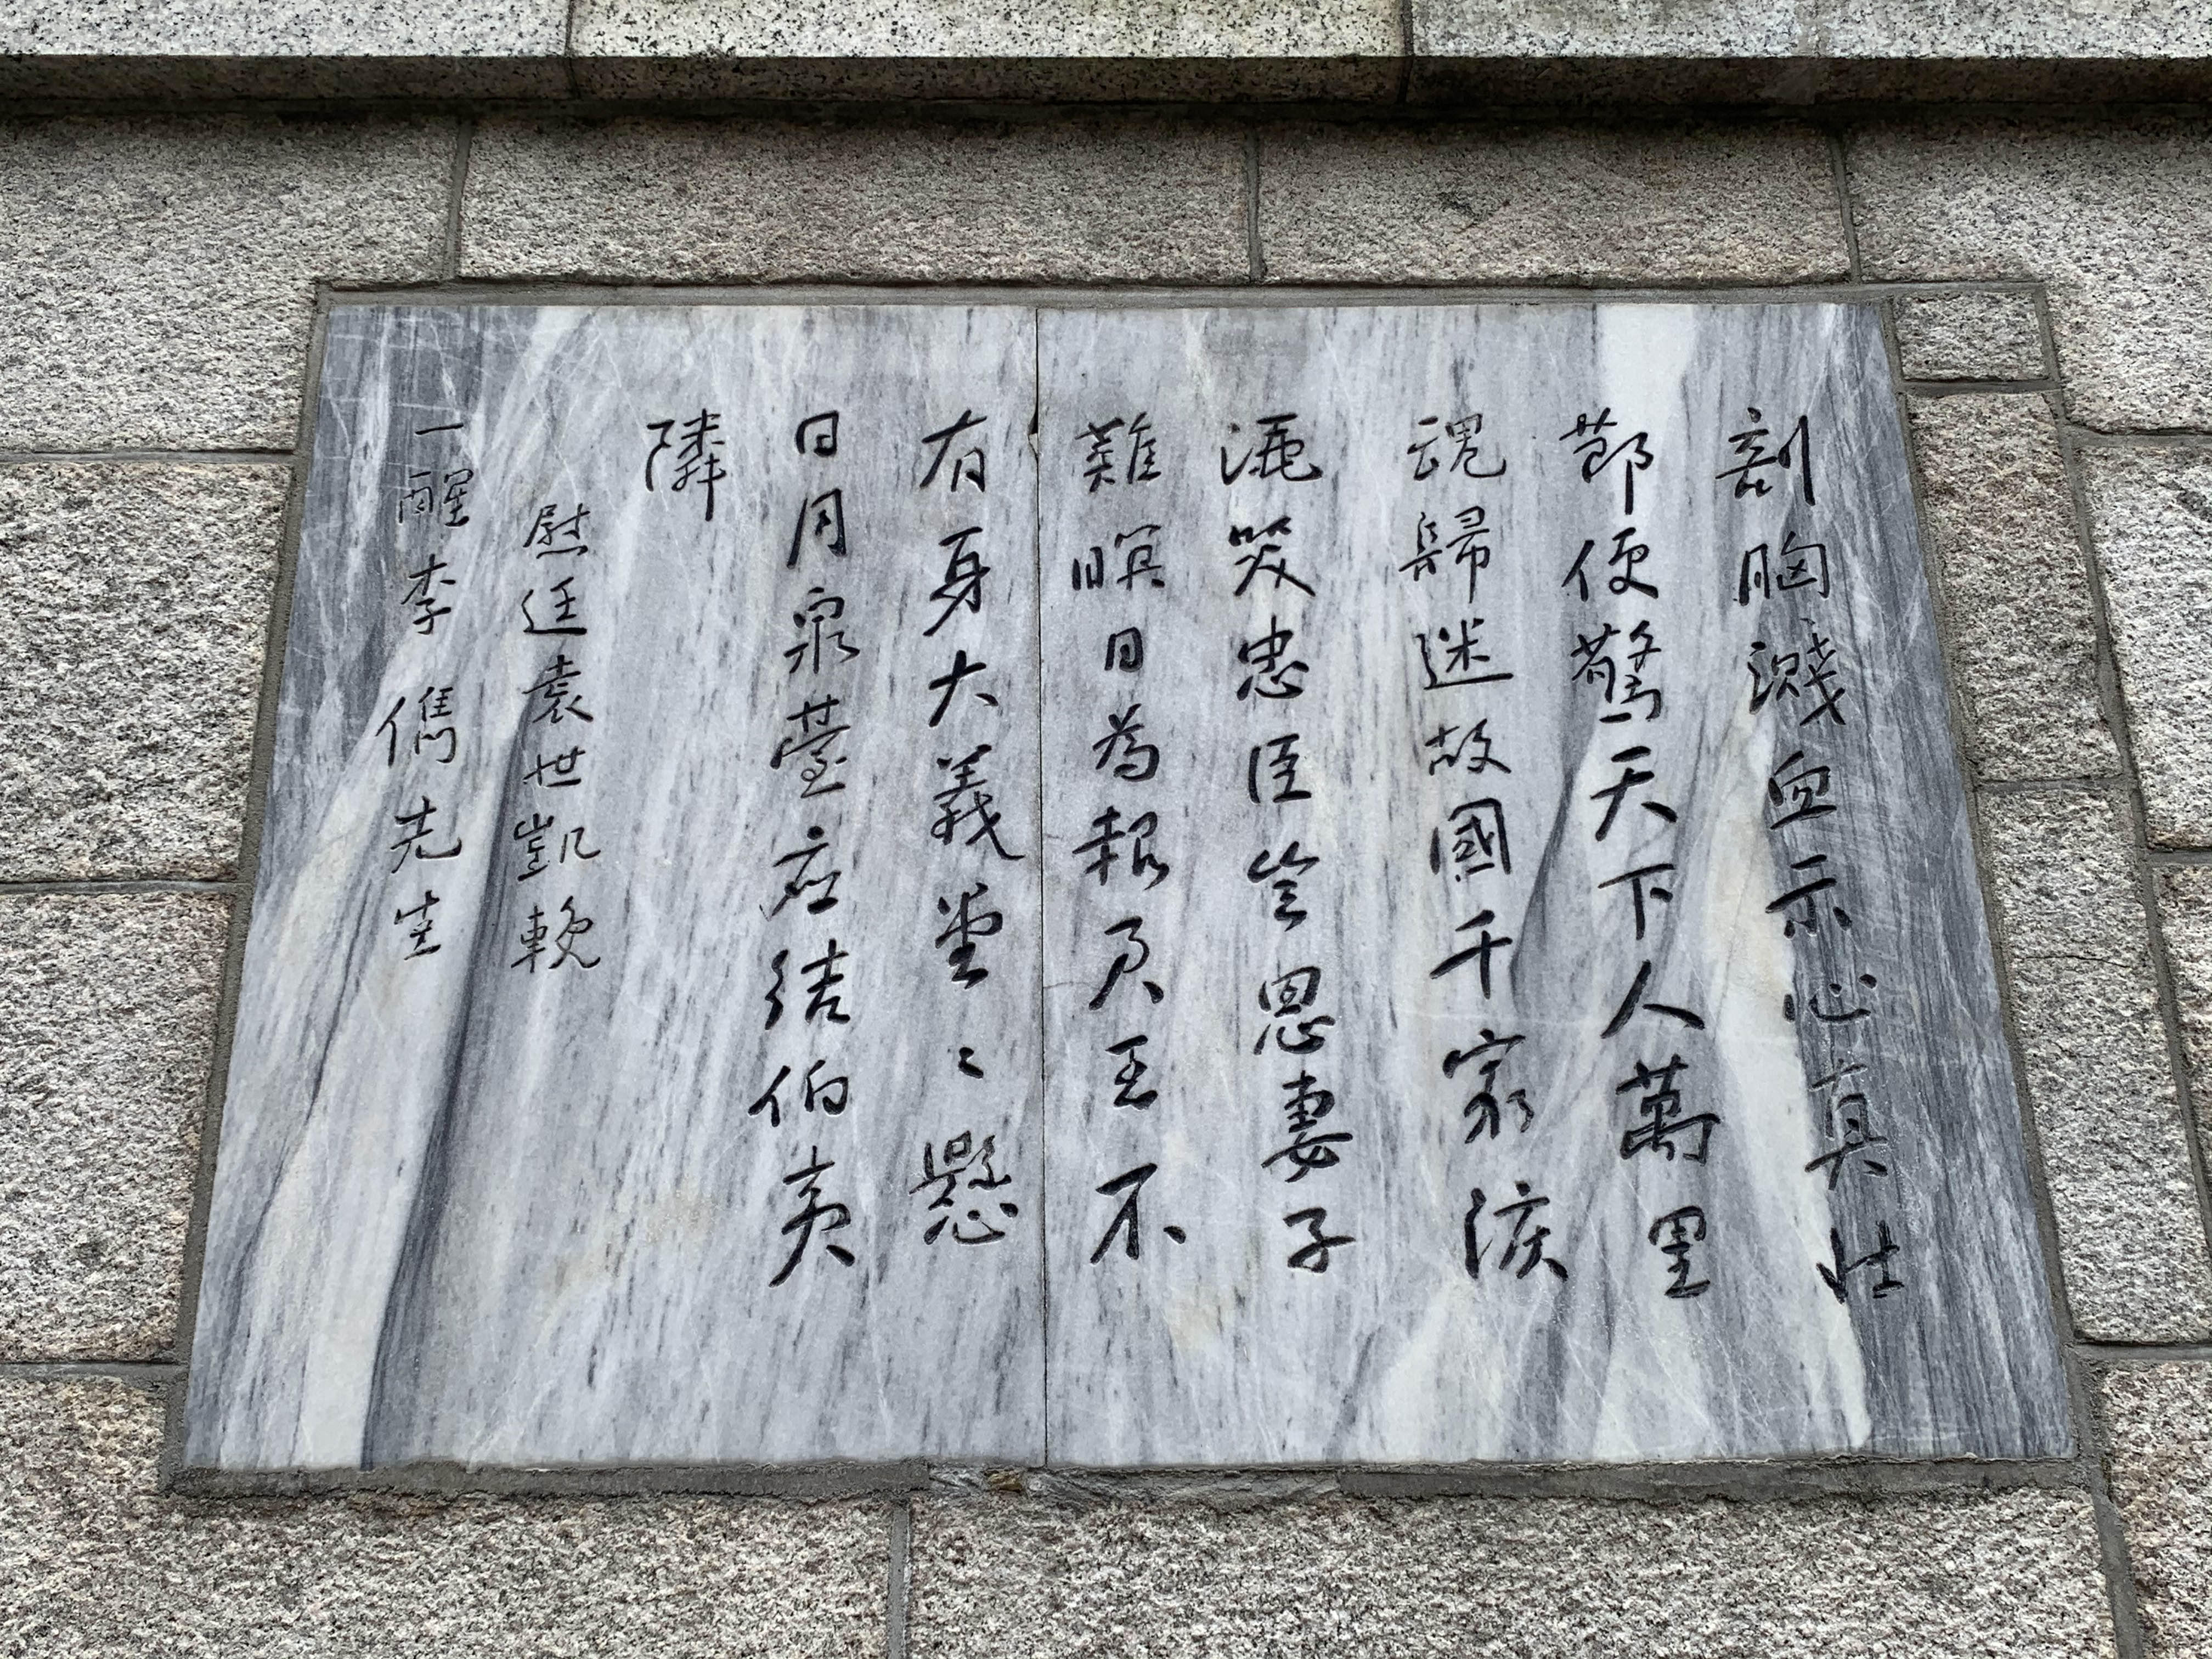 剖胸濺血示心真壯
節便驚天下人萬里
魂歸迷故國千家淚
灑哭忠臣豈思妻子
難暝日為報君王不
有身大義堂々懸
日月泉臺応結伯夷
隣
慰廷袁世凱輓
一醒李儁先生